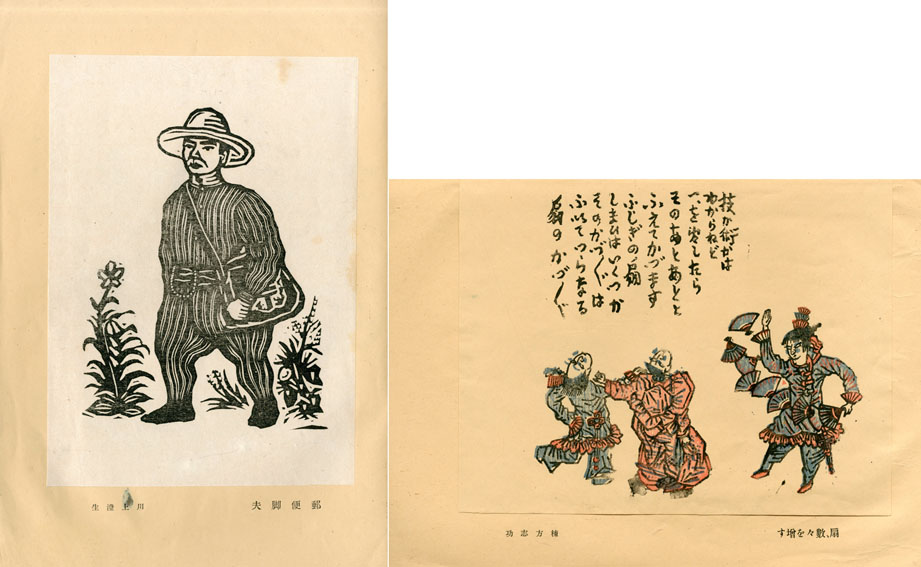 郵便脚夫
川上澄生
技か術かは
わからねど
したら
そのあとあとと
ふえてかづます
ふしぎの扇
しまひはいくつか
そのかづ〴〵は
つらなる
扇のかづ〴〵
扇、數々を增す
棟方志功